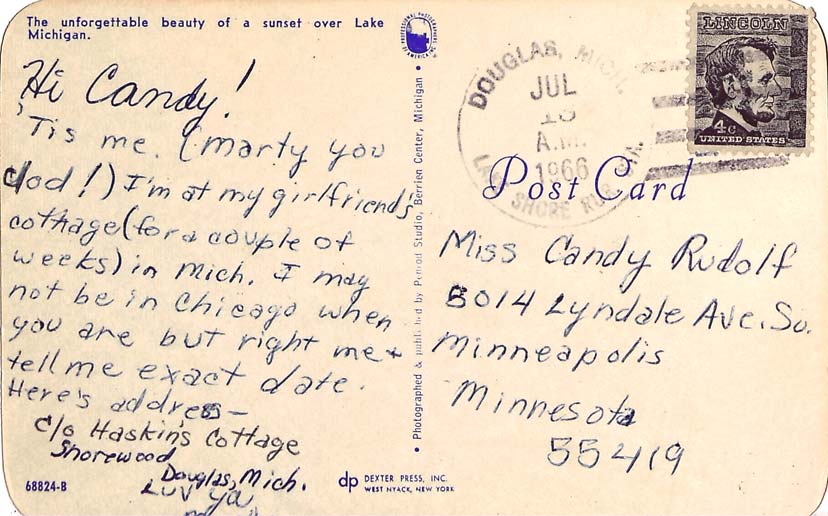 The unforgettable beauty of a sunset over Lake
Michigan.
Hi Candy!
'Tis me. (marty you
clod!) I'm at my girlfriends
cottage (for a couple of
weeks) in Mich. I may
not be in Chicago when
you are but right me +
tell me exact date.
Here's address—
c/o Haskin's Cottage
Shorewood
Douglas, Mich.
Luv ya
68824-B
PROFESSIONAL PHOTOGRAPHERS OF AMERICA INC.
• Photographed & published by Penrod Studio, Berrien Center, Michigan •
dp DEXTER PRESS, INC.
WEST NYACK, NEW YORK
DOUGLAS, MICH.
JUL
A.M.
1966
SHORE RUR. STA.
LINCOLN
4c
UNITED STATES
Post Card
Miss Candy Rudolf
5014 Lyndale Ave. So.
Minneapolis
Minnesota
55419